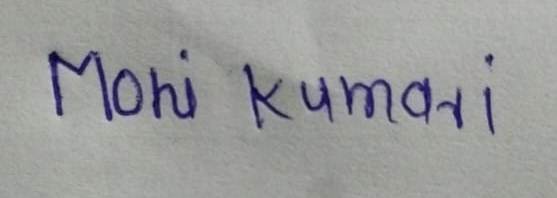 Moni Kumari